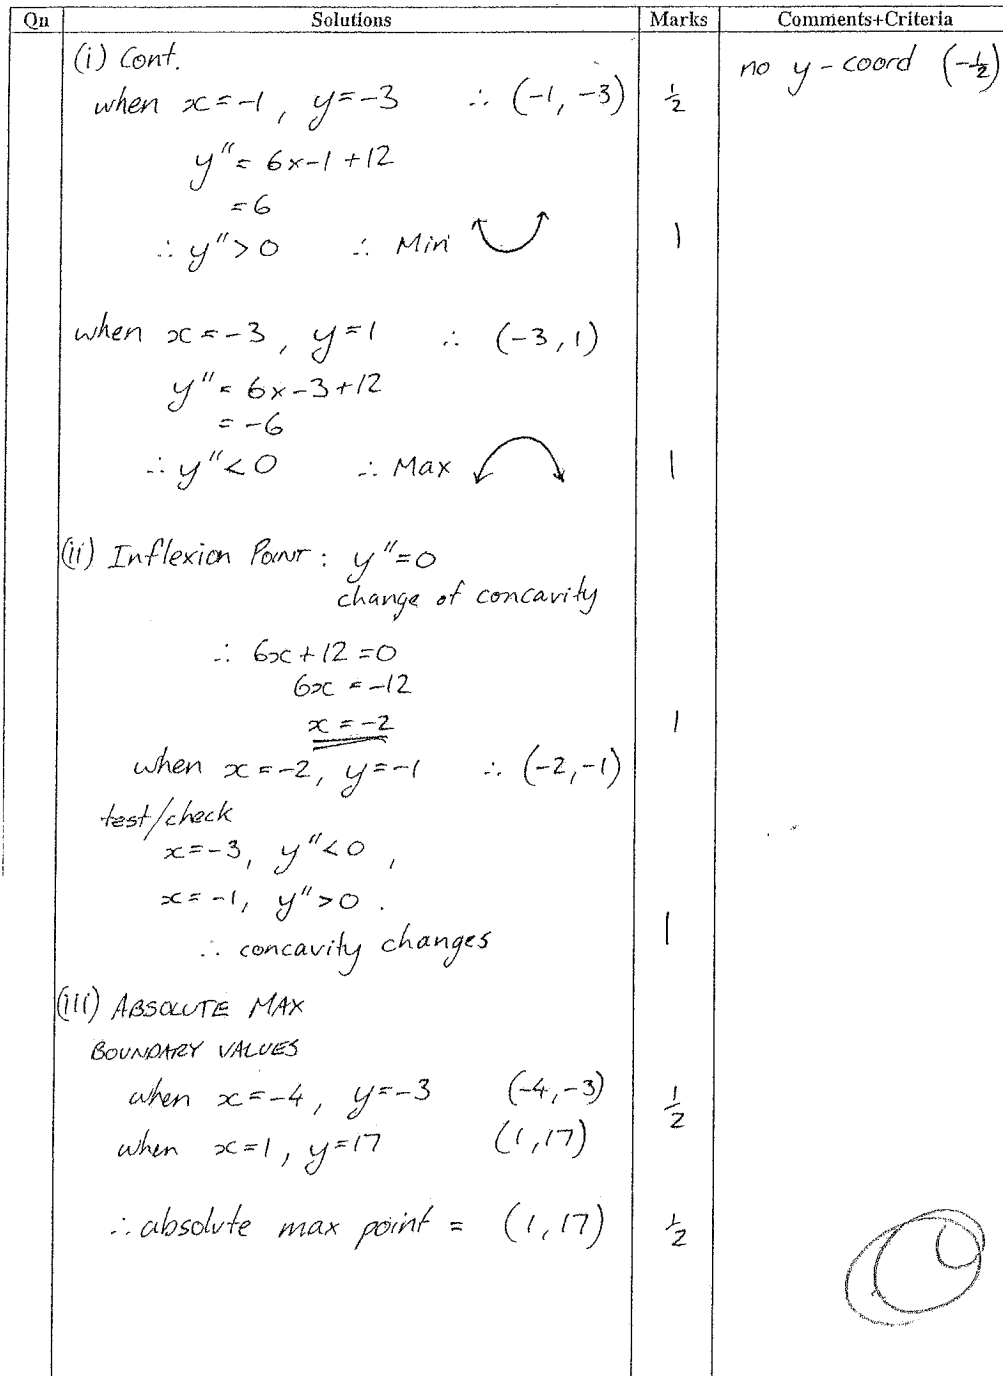 Qn Solutions Marks Comments+Criteria
(i) Cont.
no y-coord (-½)
when x=-1, y=-3 ∴ (-1, -3) ½
y"= 6x-1+12
=6
∴ y">0 ∴ Min 1
when x=-3, y=1 ∴ (-3,1)
y"= 6x-3+12
= -6
∴ y"<0 ∴ Max 1
(ii) Inflexion Point: y"=0
change of concavity
∴ 6x+12=0
6x = -12
x=-2 1
when x=-2, y=-1 ∴ (-2,-1)
test/check
x=-3, y"<0,
x=-1, y">0.
∴ concavity changes 1
(iii) ABSOLUTE MAX
BOUNDARY VALUES
when x=-4, y=-3 (-4,-3) ½
when x=1, y=17 (1,17)
∴ absolute max point = (1,17) ½